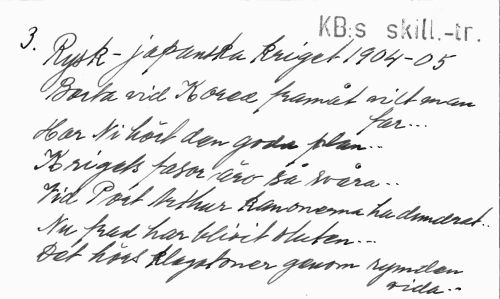 KB:s skill.-tr.
3.
Rysk-japanska kriget 1904-05
Borta vid Korea framåt vilt man
far...
Har Ni hört den goda plan..
Krigets fasor äro så svåra..
Vid Port Arthur kanonerna ha dundrat..
Nu fred har blivit sluten...
Det hörs klagotoner genom rymden
vida..